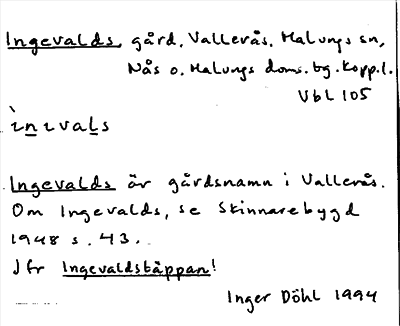 Ingevalds, gård, Vallerås, Malungs sn,
Nås o. Malungs doms.bg. Kopp.l.
Vbl 105
ìnıvals
Ingevalds är gårdsnamn i Vallerås.
Om Ingevalds, se Skinnarebygd
1948 s. 43.
Jfr Ingevaldstäppan!
Inger Döhl 1994